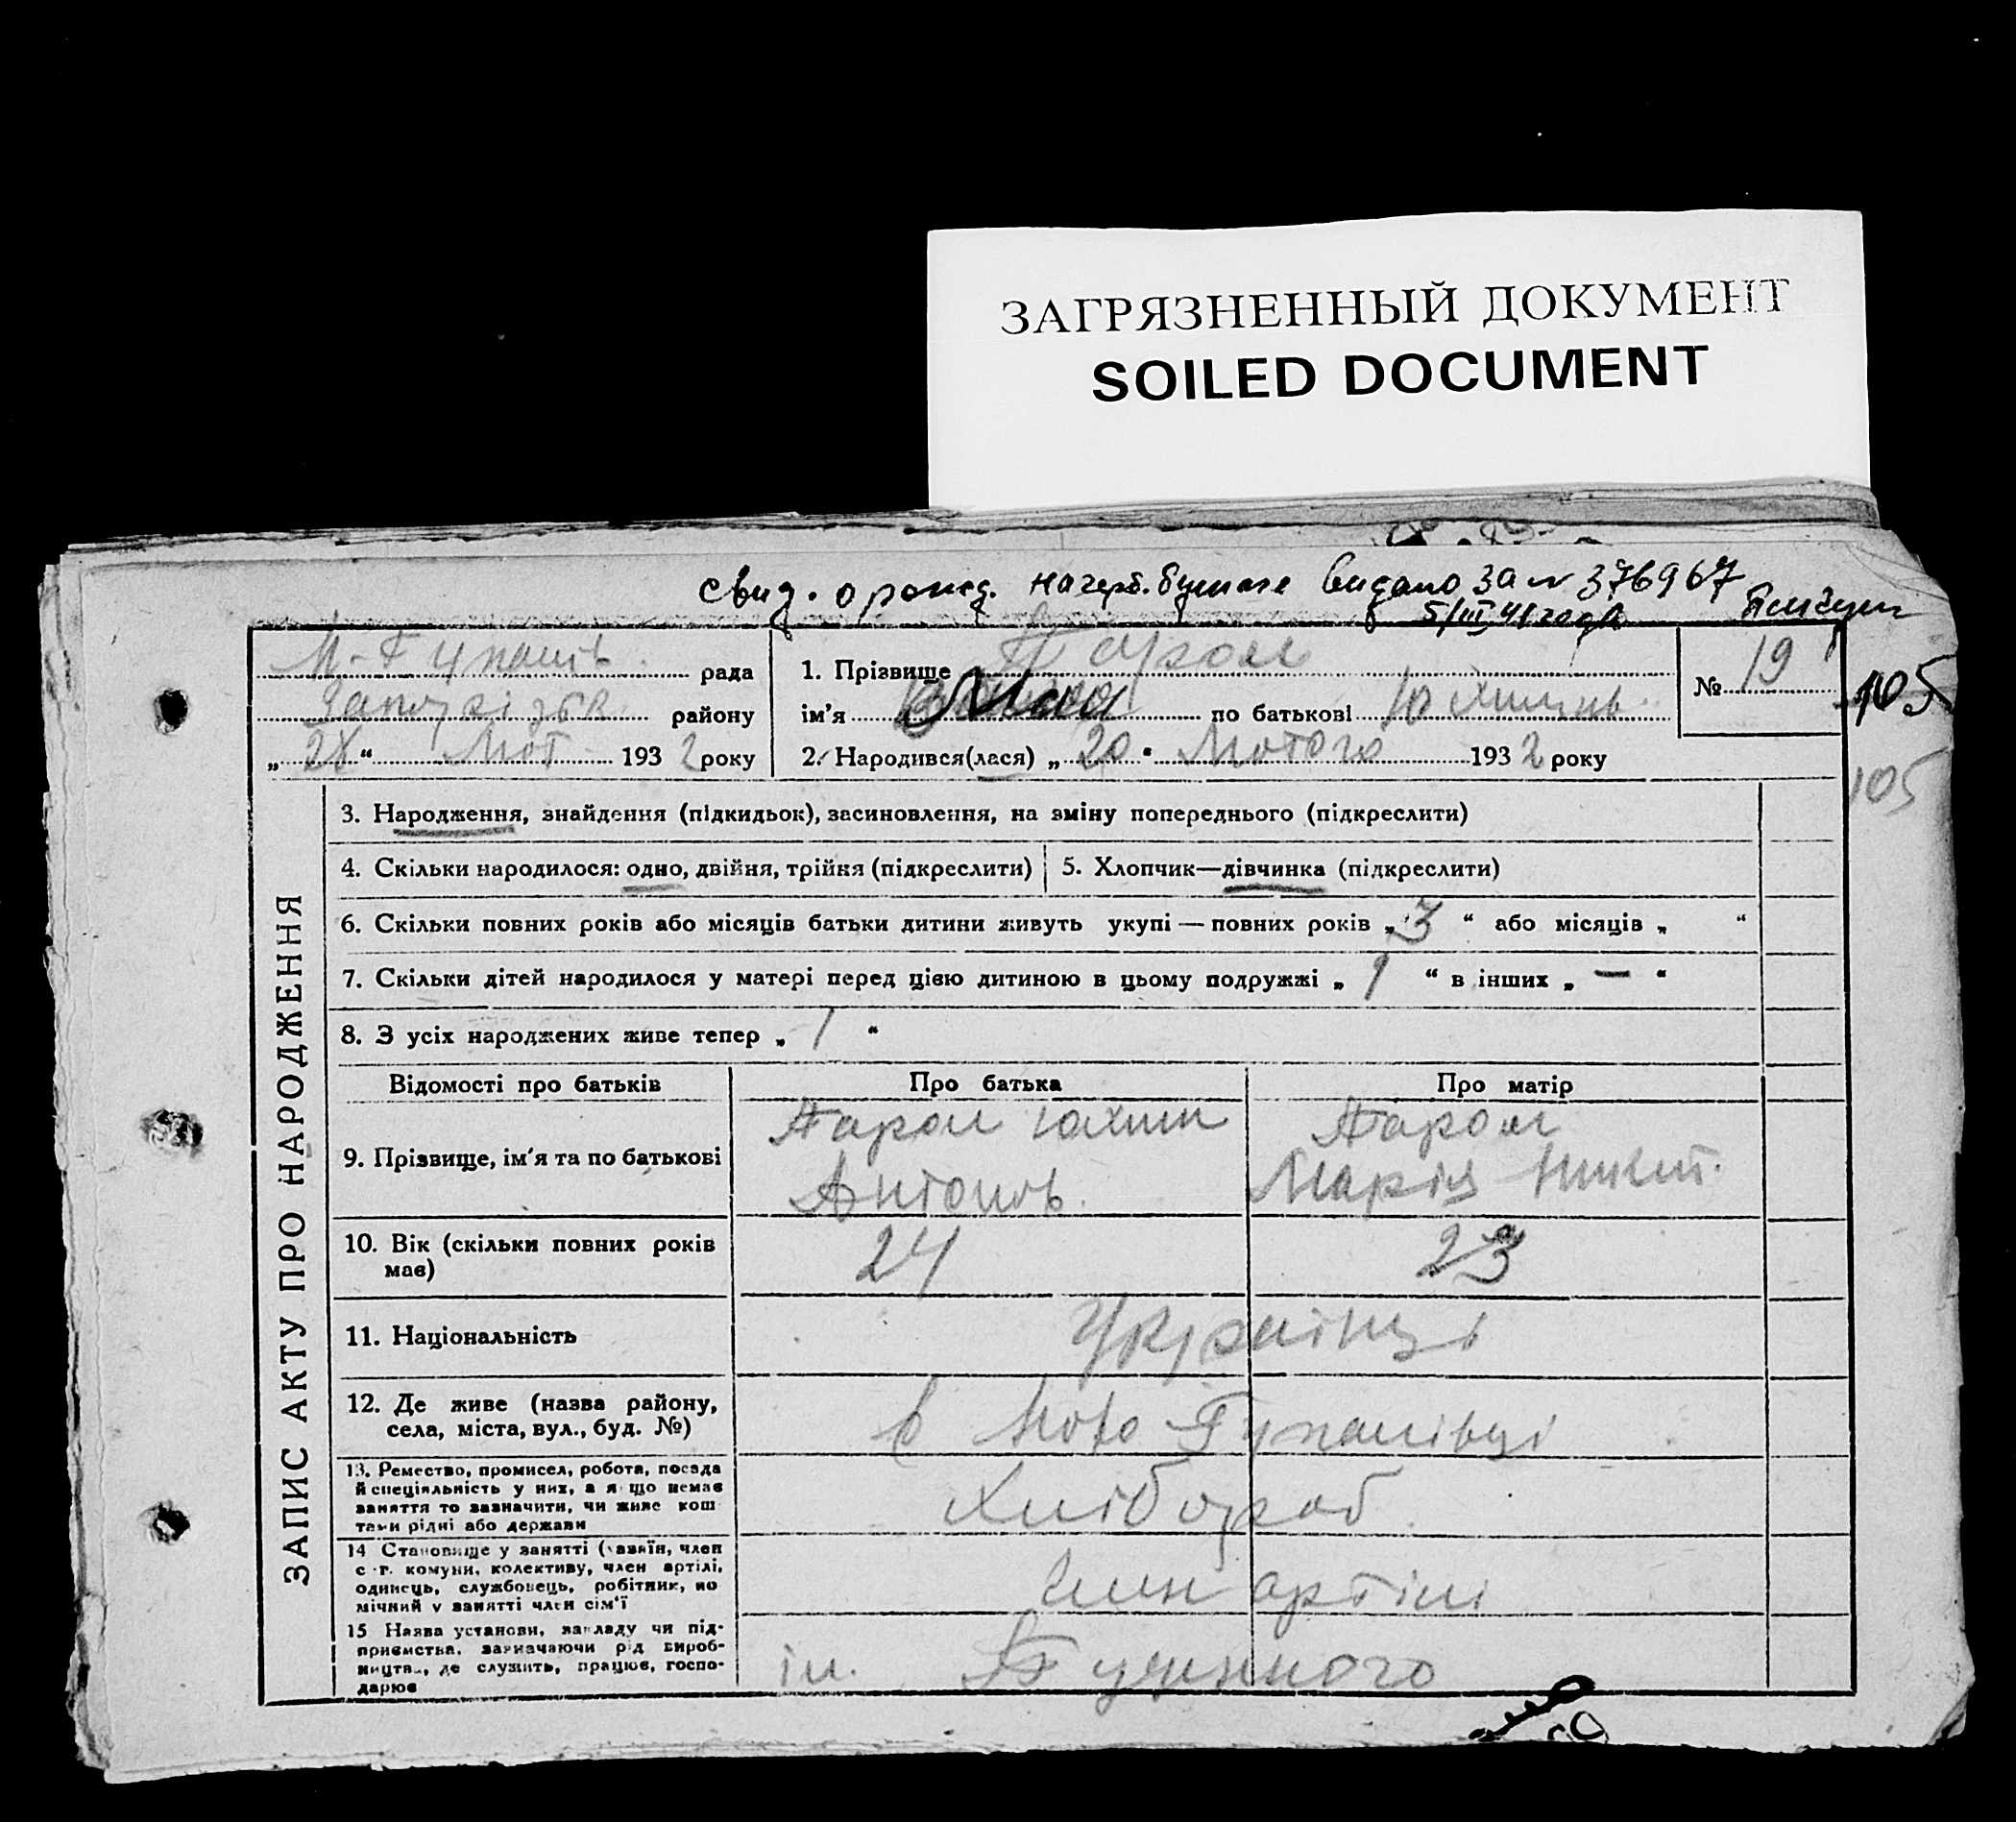 ЗАГРЯЗНЕННЫЙ ДОКУМЕНТ
SOILED DOCUMENT
свид. о рожд. на герб. бумаге видано за № 376967
5/III 41 года
рада
району
„28“ Лют 1932 року
1. Прізвище
ім'я по батькові Юхимів.
2. Народився(лася) „20“ Лютого 1932 року
№ 19
105
105
ЗАПИС АКТУ ПРО НАРОДЖЕННЯ
3. Народження, знайдення (підкидьок), засиновлення, на зміну попереднього (підкреслити)
4. Скільки народилося: одно, двійня, трійня (підкреслити)
5. Хлопчик—дівчинка (підкреслити)
6. Скільки повних років або місяців батьки дитини живуть укупі — повних років „3“ або місяців „ “
7. Скільки дітей народилося у матері перед цією дитиною в цьому подружжі „1“ в інших „—“
8. З усіх народжених живе тепер „1“
Відомості про батьків Про батька Про матір
9. Прізвище, ім'я та по батькові
Антонів.
Марія Никит.
10. Вік (скільки повних років
має)
24 23
11. Національність
Українці
12. Де живе (назва району,
села, міста, вул., буд. №)
в Ново-Гупалівці
13. Ремество, промисел, робота, посада
й спеціяльність у них, а якщо немає
заняття то зазначити, чи живе кош
тами рідні або держави
Хлібороб
14 Становище у занятті (хазяїн, член
с.-г. комуни, колективу, член артілі,
одинець, службовець, робітник, по
мічний у занятті член сім'ї
Член артілі
15 Назва установи, закладу чи під-
приємства, зазначаючи рід вироб-
ництва, де служить, працює, госпо-
дарює
ім. Будьонного